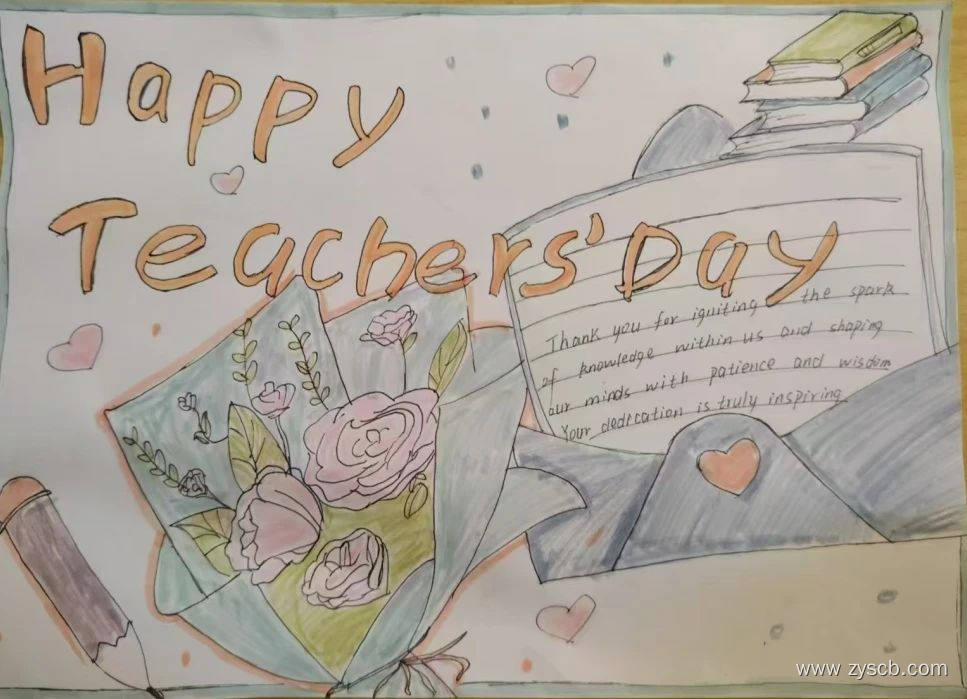 Happy
Teachers' Day
Thank you for igniting the spark
of knowledge within us and shaping
our minds with patience and wisdom
Your dedication is truly inspiring.
www.zyscb.com